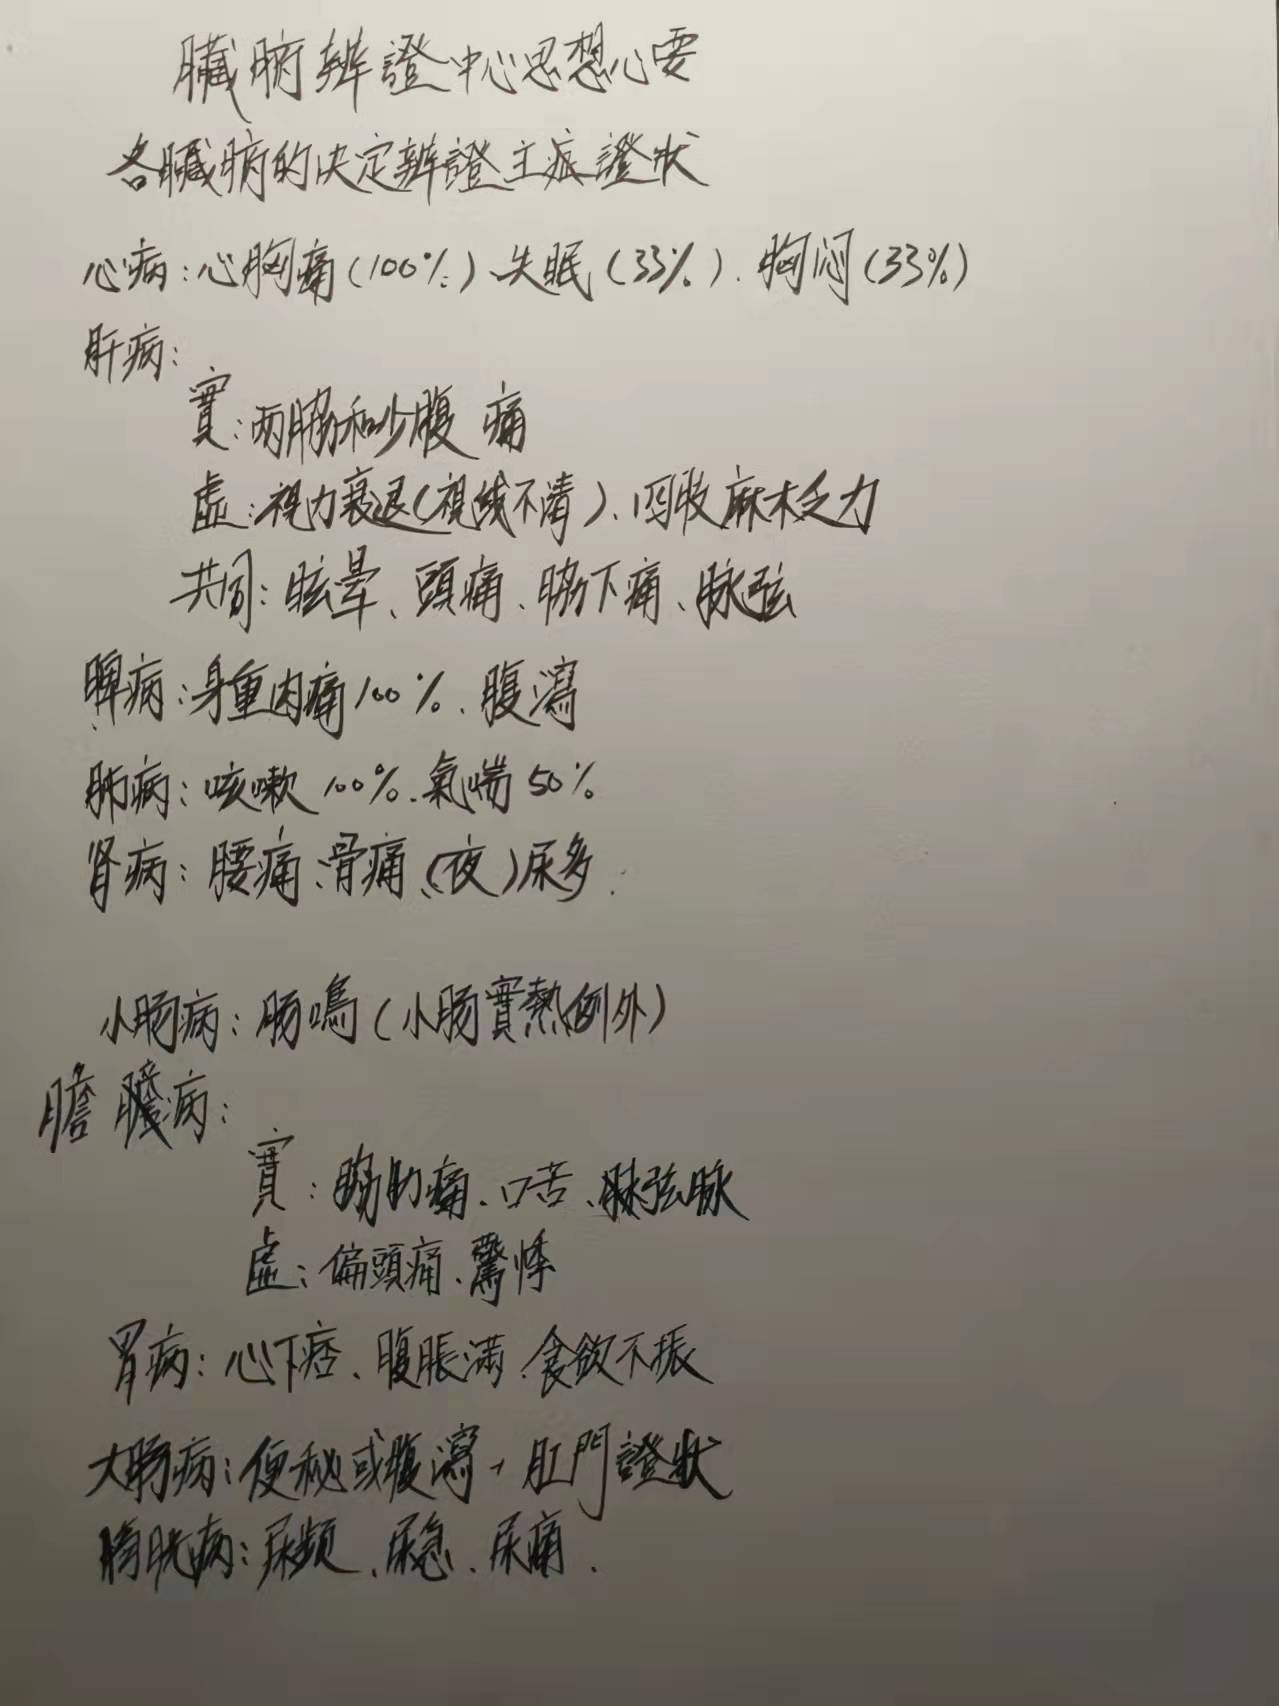 臟腑辨證中心思想心要
各臟腑的决定辨證主症證狀
心病：心胸痛(100%)、失眠(33%)、胸闷(33%)
肝病：
實：两脇和少腹痛
虛：視力衰退(視线不清)、四收麻木乏力
共同：眩暈、頭痛、脇下痛、脉弦
脾病：身重肉痛100%、腹瀉
肺病：咳嗽100%、氣喘50%
肾病：腰痛、骨痛、(夜)尿多.
小肠病：肠鳴(小肠實熱例外)
膽病：
實：脇肋痛、口苦、弦脉
虛：偏頭痛、驚悸
胃病：心下痞、腹脹满、食欲不振
大肠病：便秘或腹瀉+肛門證狀
膀胱病：尿频、尿急、尿痛.